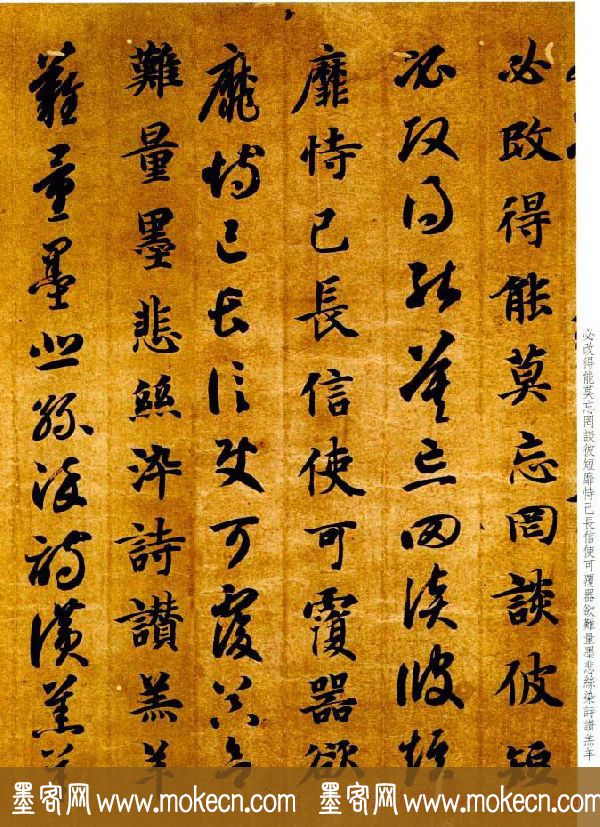 必改得能莫忘罔談彼短
必改得能莫忘罔談彼短
靡恃己長信使可覆器欲
靡恃己長信使可覆器欲
難量墨悲絲染詩讃羔羊
難量墨悲絲染詩讃羔羊
必改得能莫忘罔談彼短靡恃己長信使可覆器欲難量墨悲絲染詩讃羔羊
墨客网 www.mokecn.com 墨客网 www.mokecn.com